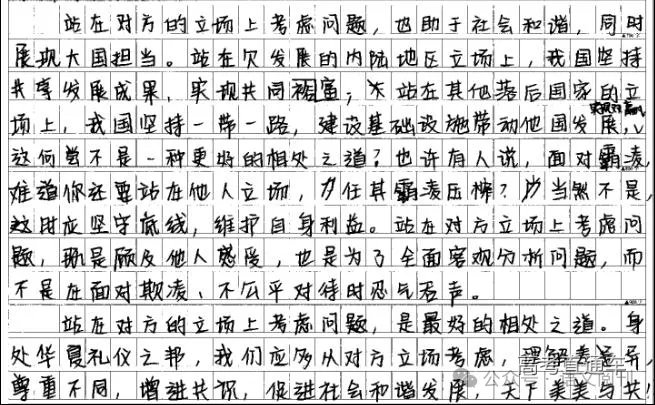 站在对方的立场上考虑问题，也助于社会和谐，同时
展现大国担当。站在欠发展的内陆地区立场上，我国坚持
共享发展成果，实现共同裕富；站在其他落后国家的立
场上，我国坚持一带一路，建设基础设施带动他国发展，实现双赢，
这何尝不是一种更好的相处之道？也许有人说，面对霸凌，
难道你还要站在他人立场，任其霸凌压榨？当然不是，
这时应坚守底线，维护自身利益。站在对方立场上考虑问
题，既是顾及他人感受，也是为了全面客观分析问题，而
不是在面对欺凌、不公平对待时忍气吞声。
站在对方的立场上考虑问题，是最好的相处之道。身
处华夏礼仪之邦，我们应多从对方立场考虑，理解差异，
尊重不同，增进共识，促进社会和谐发展，天下美美与共！
公众号